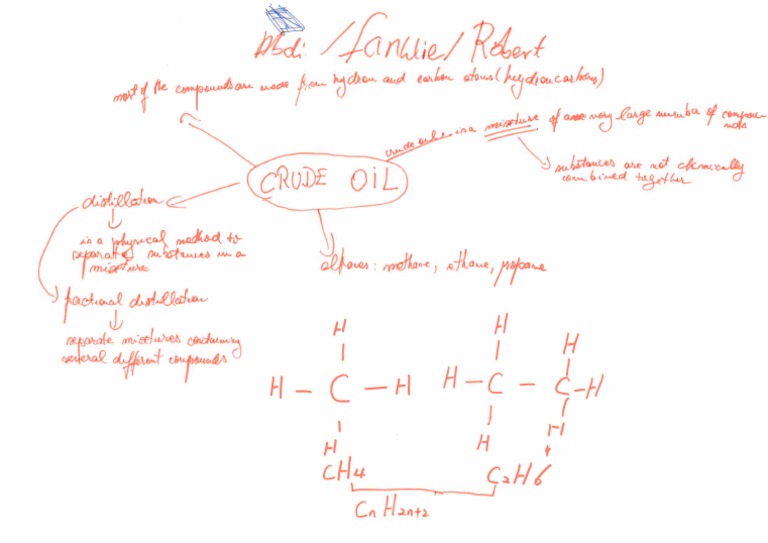 Abdi / Fanhie / Robert
most of the compounds are made from hydron and carbon atoms (hydrocarbons)
crude oil is a mixture of a very large number of compou
nds
substances are not chemically
combined together
CRUDE OIL
distillation
is a physical method to
separate substances in a
mixture
fractional distillation
separate mixtures containing
several different compounds
alkanes: methane, ethane, propane
H H
H
H – C – H H – C – C – H
H H H
CH4 C2H6
CnH2n+2